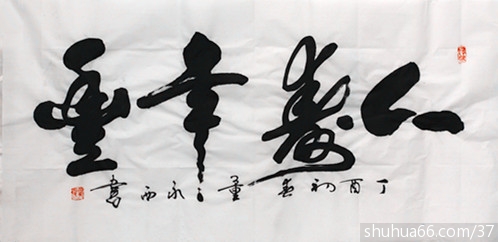 人壽年豐
丁酉初春 永西書
shuhua66.com/37